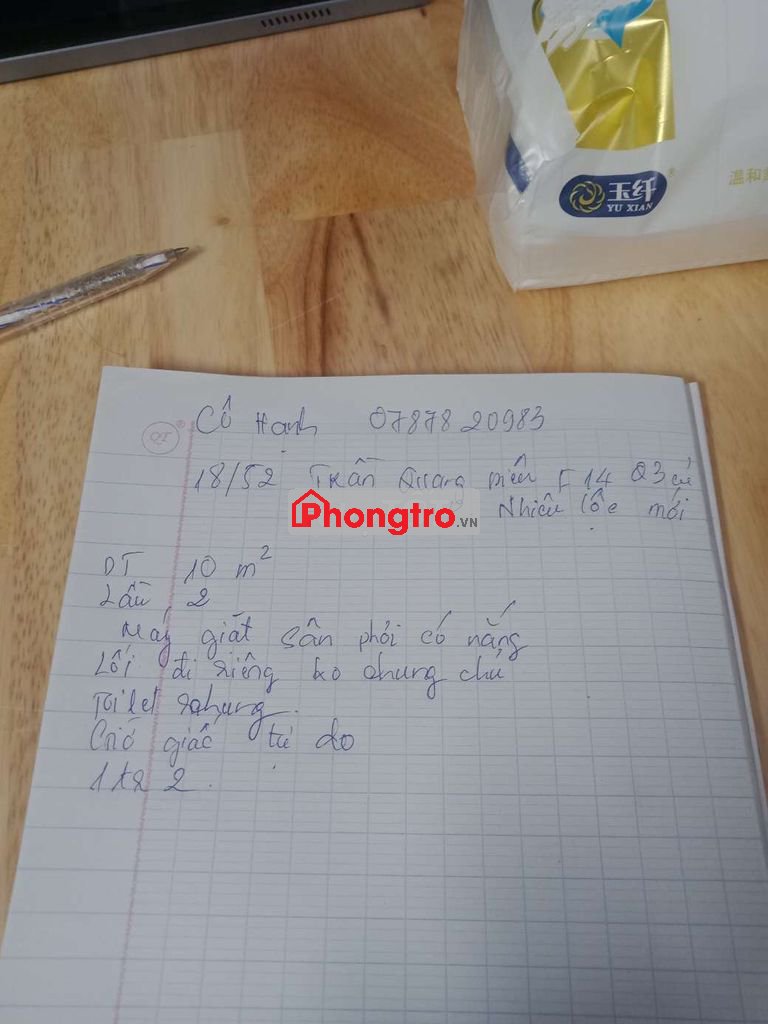 玉纤®
YU XIAN
温和
QI
Cô Hạnh 07878 20983
18/52 Trần Quang Diệu F 14 Q3 cũ
Nhiêu lộc mới
Phongtro.VN
DT 10 m²
Lầu 2
Máy giặt sân phơi có nắng
Lối đi riêng ko chung chủ
Toilet chung.
Giờ giấc tự do
1tr 2.